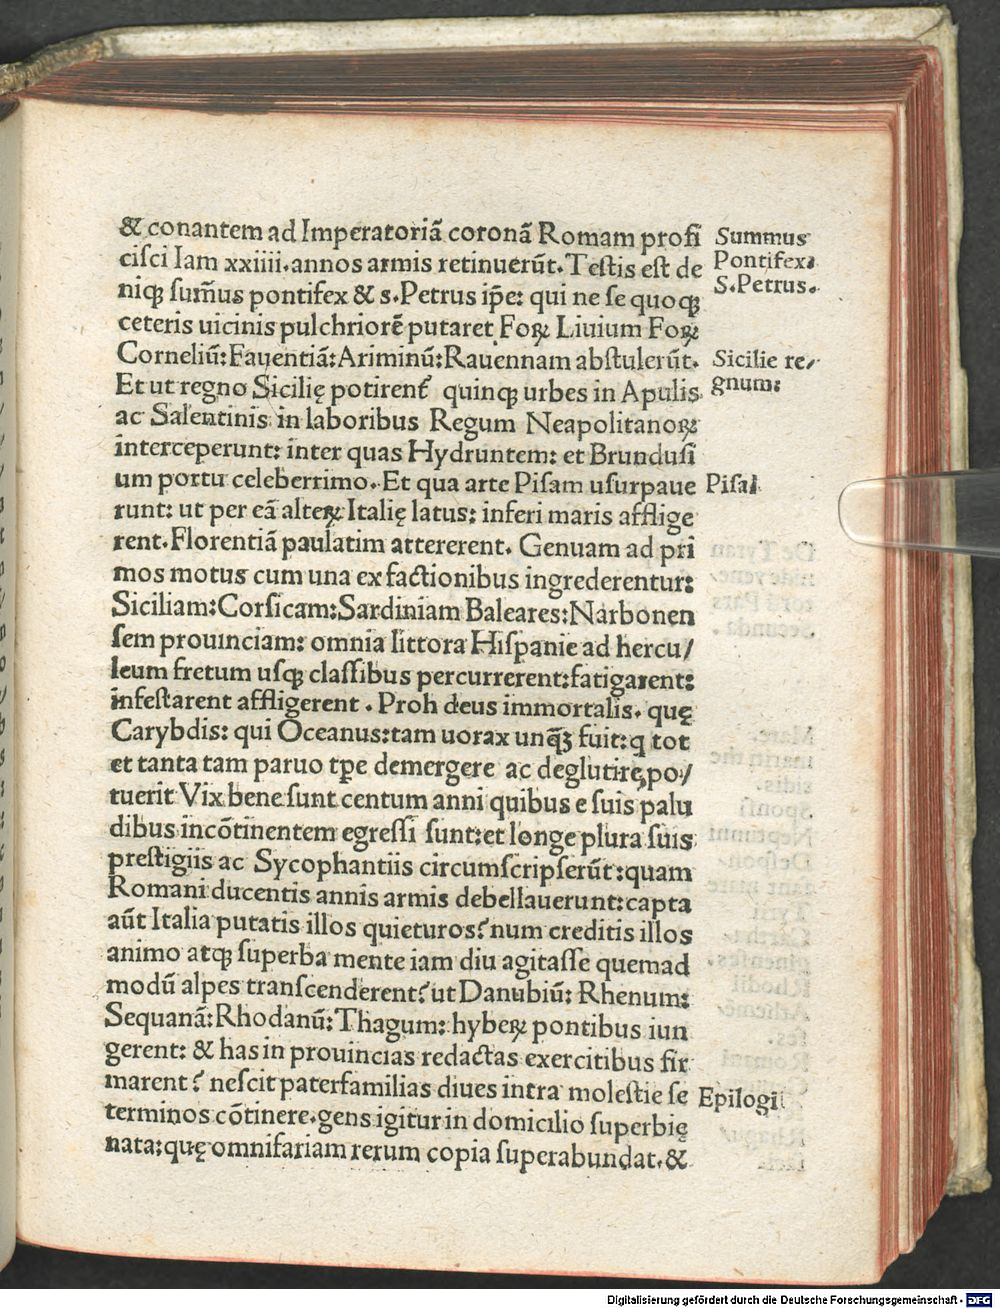 & conantem ad Imperatoriā coronā Romam profi
ciſci Iam xxiiii. annos armis retinuerūt. Teſtis eſt de
niqꝫ ſum̄us pontifex & s. Petrus ip̄e: qui ne ſe quoqꝫ
ceteris uicinis pulchriorē putaret Foꝝ Liuium Foꝝ
Corneliū: Fauentiā: Ariminū: Rauennam abſtulerūt.
Et ut regno Sicilię potirent᷑ quinqꝫ urbes in Apulis
ac Salentinis in laboribus Regum Neapolitanoꝝ
interceperunt: inter quas Hydruntem: et Brunduſi
um portu celeberrimo. Et qua arte Piſam uſurpaue
runt: ut per eā alteꝝ Italię latus: inferi maris afflige
rent. Florentiā paulatim attererent. Genuam ad pri
mos motus cum una ex factionibus ingrederentur:
Siciliam: Corſicam: Sardiniam Baleares: Narbonen
ſem prouinciam: omnia littora Hiſpanie ad hercu/
leum fretum uſqꝫ claſſibus percurrerent: fatigarent:
infeſtarent affligerent. Proh deus immortalis. quę
Carybdis: qui Oceanus: tam uorax unq̄ꝫ fuit: q tot
et tanta tam paruo tp̄e demergere ac deglutire po/
tuerit Vix bene ſunt centum anni quibus e ſuis palu
dibus incōtinentem egreſſi ſunt: et longe plura ſuis
preſtigiis ac Sycophantiis circumſcripſerūt: quam
Romani ducentis annis armis debellauerunt: capta
aūt Italia putatis illos quieturos? num creditis illos
animo atqꝫ ſuperba mente iam diu agitaſſe quemad
modū alpes tranſcenderent? ut Danubiū: Rhenum:
Sequanā: Rhodanū: Thagum: hybeꝝ pontibus iun
gerent: & has in prouincias redactas exercitibus fir
marent? neſcit paterfamilias diues intra moleſtie ſe
terminos cōtinere. gens igitur in domicilio ſuperbię
nata: quę omnifariam rerum copia ſuperabundat. &
Summus
Pontifex.
S. Petrus.
Sicilie re/
gnum:
Piſa
Epilogi
Digitalisierung gefördert durch die Deutsche Forschungsgemeinschaft - DFG